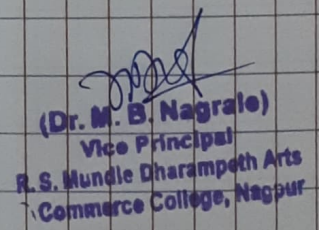 (Dr. M. B. Nagrale)
Vice Principal
R. S. Mundle Dharampeth Arts
Commerce College, Nagpur